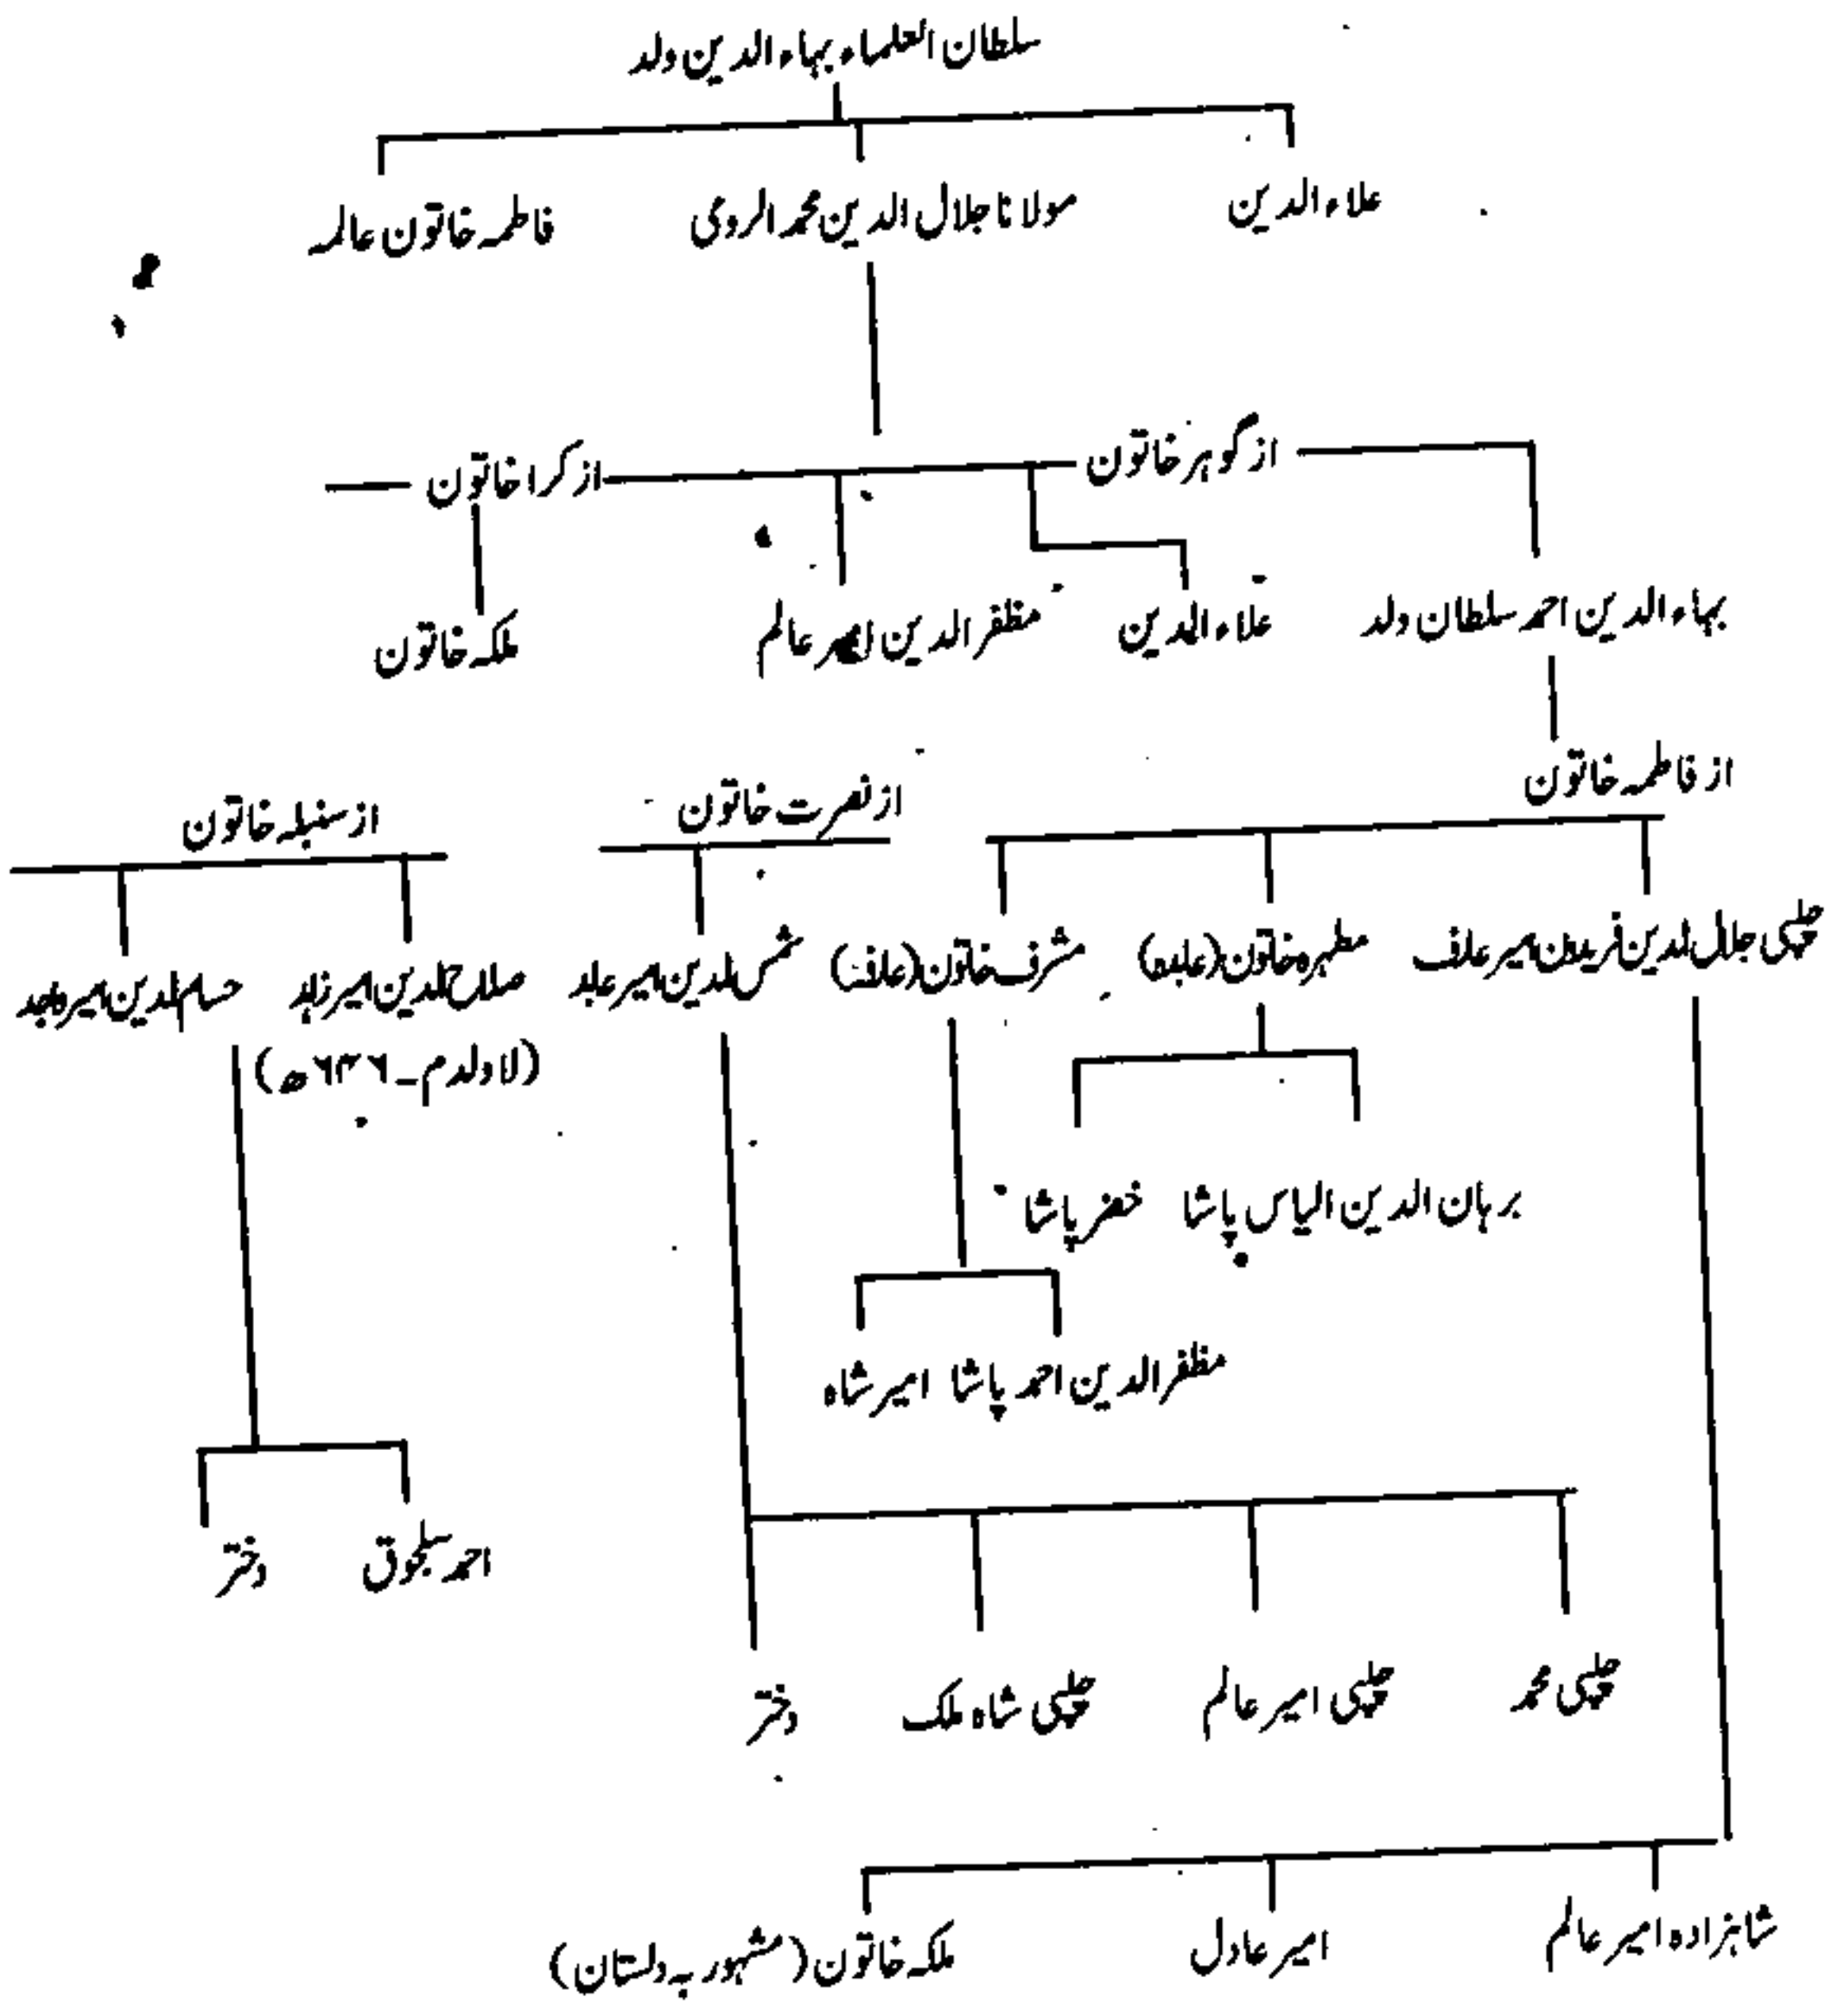 سلطان العلماء بہاء الدین ولد
علاء الدین
مولانا جلال الدین محمد الرومی
فاطمہ خاتون عالمہ
از گوہر خاتون
از کرا خاتون
بہاء الدین احمد سلطان ولد
علاء الدین
مظفر الدین امیر عالم
ملکہ خاتون
از فاطمہ خاتون
از نصرت خاتون
از سنبلہ خاتون
چلپی جلال الدین فریدون امیر عارف
مطہرہ خاتون (عابدہ)
مشرف خاتون (عارفہ)
شمس الدین امیر عابد
صلاح الدین امیر زاہد
(لا ولد م ـ ۶۳۶ھ)
حسام الدین امیر واجد
برہان الدین الیاس پاشا
خضر پاشا
مظفر الدین احمد پاشا
امیر شاہ
احمد سلجوق
دختر
چلپی محمد
چلپی امیر عالم
چلپی شاہ ملک
دختر
شاہزادہ امیر عالم
امیر عادل
ملکہ خاتون (مشہور بہ دلستان)